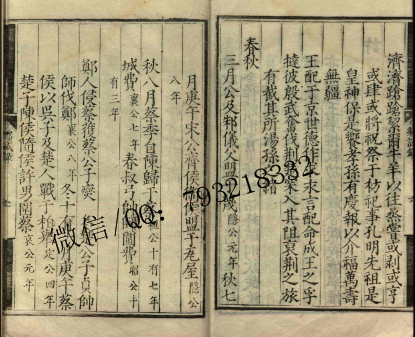 濟濟蹌蹌絜爾牛羊以往烝嘗或剥或亨
或肆或將祝祭于祊祀事孔明先祖是
皇神保是饗孝孫有慶報以介福萬壽
無疆
王配于京世德作求永言配命成王之孚
撻彼殷武奮伐荆楚罙入其阻裒荆之旅
有截其所湯孫之緒
春秋
三月公及邾儀父盟于蔑隱公元年秋七
月庚午宋公齊侯衛侯盟于瓦屋隱公
八年
秋八月蔡季自陳歸于蔡桓公十有七年
城費襄公七年春叔弓帥師圍費昭公十
有三年
鄭人侵蔡獲蔡公子燮 公子貞帥
師伐鄭襄公八年冬十有一月庚午蔡
侯以吳子及楚人戰于柏舉定公四年
楚子陳侯隨侯許男圍蔡哀公元年
微信/QQ：793218332